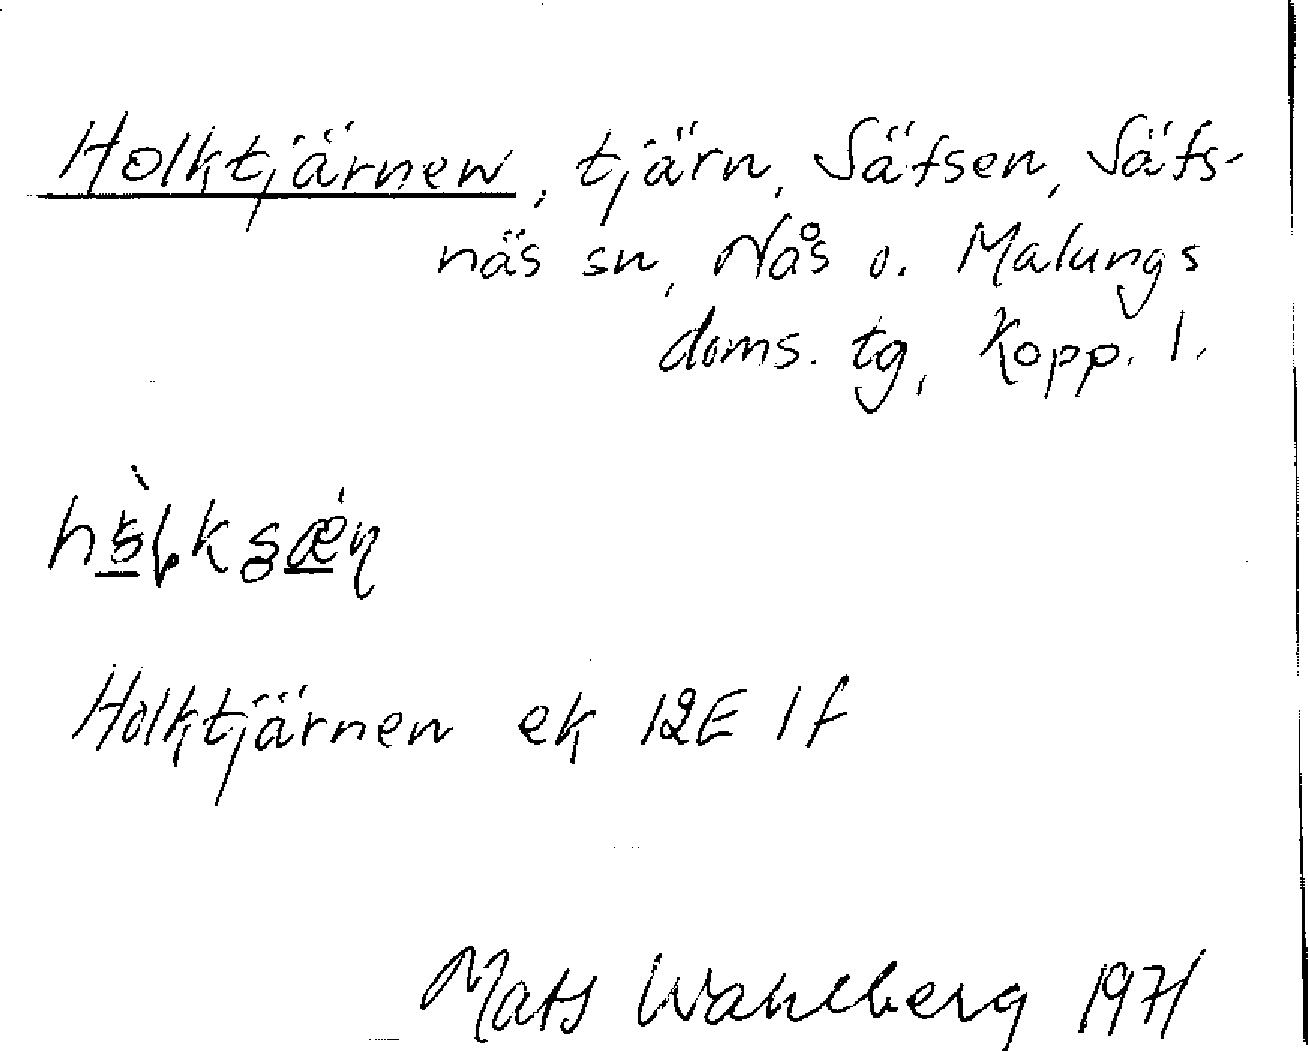 Holktjärnen, tjärn, Säfsen, Säfs-
näs sn, Nås o. Malungs
doms. tg, Kopp. l.
Holktjärnen ek 12E 1f
Mats Wahlberg 1971